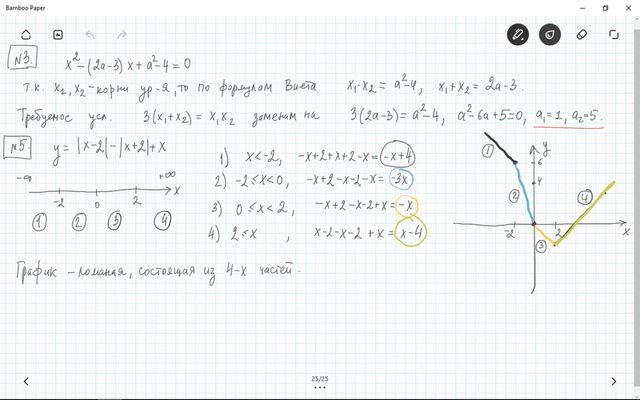 Bamboo Paper
№3. x² – (2a–3) x + a² – 4 = 0
т.к. x₁, x₂ – корни ур-я, то по формулам Виета x₁·x₂ = a²–4, x₁+x₂ = 2a–3.
Требуемое усл. 3(x₁+x₂) = x₁x₂ заменим на 3(2a–3) = a²–4, a²–6a+5=0, a₁=1, a₂=5.
№5. y = |x–2| – |x+2| + x
1) x<–2, –x+2+x+2–x = –x+4
2) –2≤x<0, –x+2–x–2–x = –3x
3) 0≤x<2, –x+2–x–2+x = –x
4) 2≤x, x–2–x–2+x = x–4
–∞ +∞
–2 0 2 x
1 2 3 4
y
6
4
1 2 3 4
–2 2 x
График – ломаная, состоящая из 4-х частей.
25/25